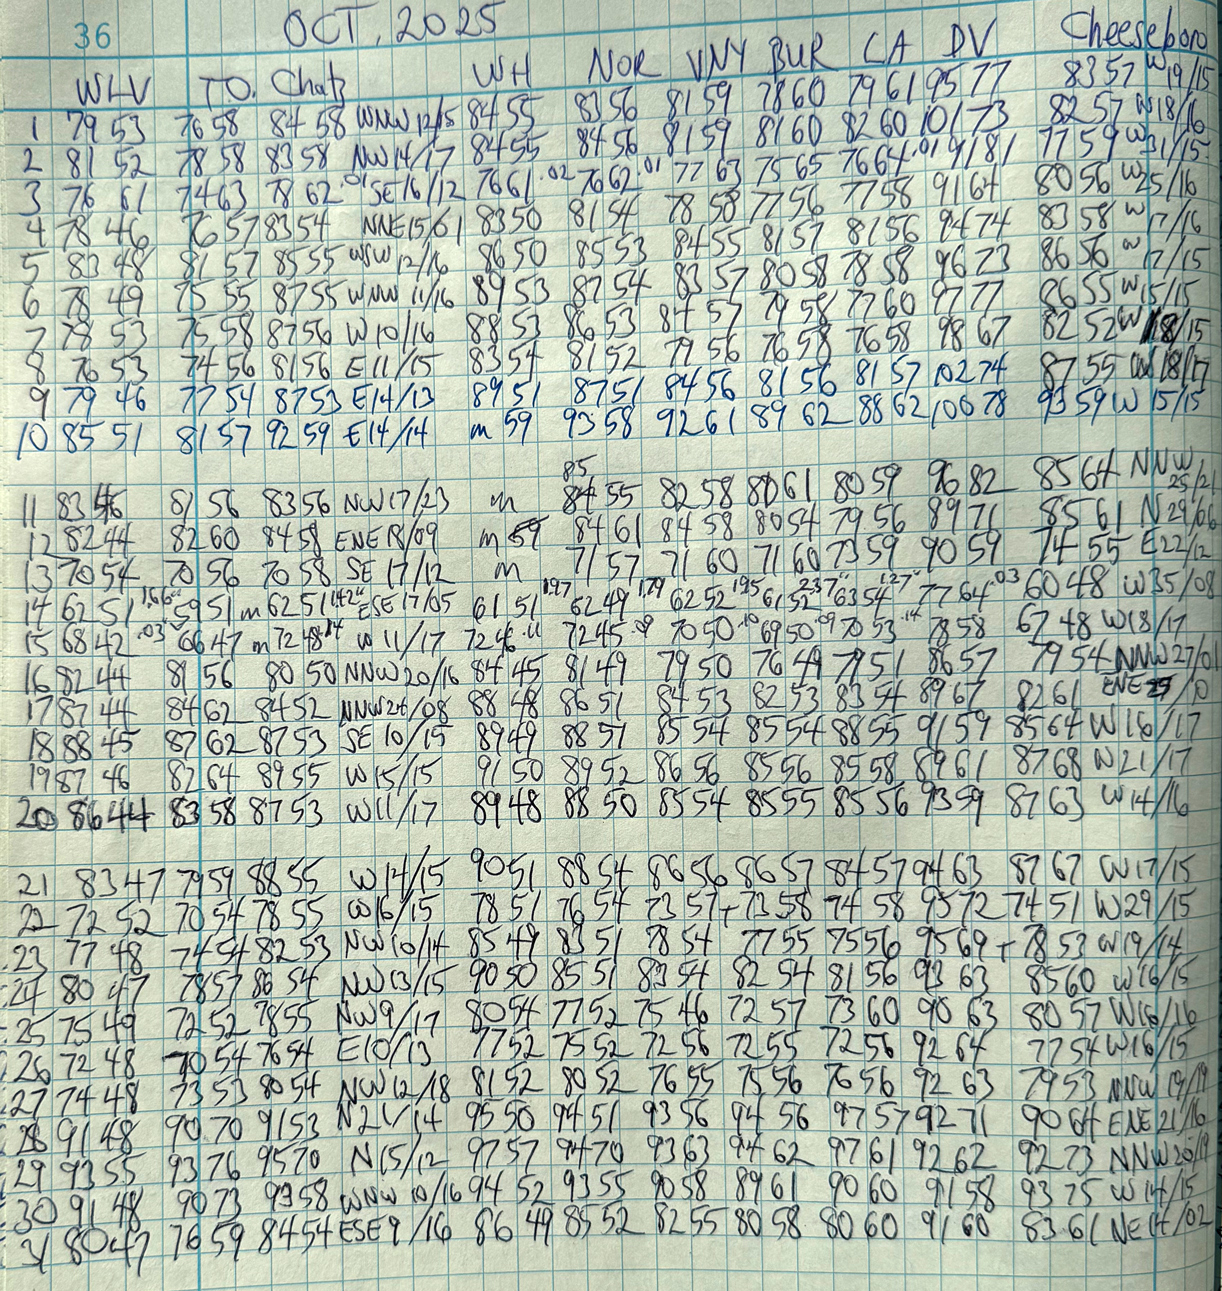 36 OCT, 2025
WLV TO. Chats WH NOR VNY BUR LA DV Cheeseboro
1 79 53 76 58 84 58 WNW 12/15 84 55 83 56 81 59 78 60 79 61 95 77 83 57 W 19/15
2 81 52 78 58 83 58 NW 14/17 84 55 84 56 81 59 81 60 82 60 101 73 82 57 W 18/16
3 76 61 74 63 78 62 .01 SE 16/12 76 61 .02 76 62 .01 77 63 75 65 76 64 .01 91 81 77 59 W 31/15
4 78 46 76 57 83 54 NNE 15/01 83 50 81 54 78 58 77 56 77 58 91 64 80 56 W 25/16
5 83 48 81 57 85 55 WSW 12/16 86 50 85 53 84 55 81 57 81 56 94 74 83 58 W 17/16
6 78 49 75 55 87 55 WNW 11/16 89 53 87 54 83 57 80 58 78 58 96 73 86 56 W 17/15
7 78 53 75 58 87 56 W 10/16 88 53 86 53 84 57 79 58 77 60 97 77 86 55 W 15/15
8 76 53 74 56 81 56 E 11/15 83 54 81 52 79 56 76 58 76 58 98 67 82 52 W 18/15
9 79 46 77 54 87 53 E 14/13 89 51 87 51 84 56 81 56 81 57 102 74 87 55 W 18/17
10 85 51 81 57 92 59 E 14/14 m 59 93 58 92 61 89 62 88 62 100 78 93 59 W 15/15
85
11 83 46 81 56 83 56 NW 17/23 m 84 55 82 58 80 61 80 59 96 82 85 64 NNW 25/21
12 82 44 82 60 84 58 ENE 18/09 m 59 84 61 84 58 80 54 79 56 89 71 85 61 N 29/06
13 70 54 70 56 70 58 SE 17/12 m 71 57 71 60 71 60 73 59 90 59 74 55 E 22/12
14 62 51 1.66" 59 51 m 62 51 1.42" ESE 17/05 61 51 1.97 62 49 1.79 62 52 1.95 61 52 2.37" 63 54 1.27" 77 64 .03 60 48 W 35/08
15 68 42 .03 66 47 m 72 48 .14 W 11/17 72 46 .11 72 45 .09 70 50 .10 69 50 .09 70 53 .14 78 58 67 48 W 18/17
16 82 44 81 56 80 50 NNW 20/16 84 45 81 49 79 50 76 49 79 51 86 57 79 54 NNW 27/01
17 87 44 84 62 84 52 NNW 24/08 88 48 86 51 84 53 82 53 83 54 89 67 82 61 ENE 25/10
18 88 45 87 62 87 53 SE 10/15 89 49 88 57 85 54 85 54 88 55 91 59 85 64 W 16/17
19 87 46 82 64 89 55 W 15/15 91 50 89 52 86 56 85 56 85 58 89 61 87 68 W 21/17
20 86 44 83 58 87 53 W 11/17 89 48 88 50 85 54 85 55 85 56 93 59 87 63 W 14/16
21 83 47 79 59 88 55 W 14/15 90 51 88 54 86 56 86 57 84 57 94 63 87 67 W 17/15
22 72 52 70 54 78 55 W 16/15 78 51 76 54 73 57 + 73 58 74 58 95 72 74 51 W 29/15
23 77 48 74 54 82 53 NW 10/14 85 49 83 51 78 54 77 55 75 56 95 69 + 78 53 W 19/14
24 80 47 78 57 86 54 NW 13/15 90 50 85 51 83 54 82 54 81 56 93 63 85 60 W 16/15
25 75 49 72 52 78 55 NW 9/17 80 54 77 52 75 46 72 57 73 60 90 63 80 57 W 16/16
26 72 48 70 54 76 54 E 10/13 77 52 75 52 72 56 72 55 72 56 92 64 77 54 W 16/15
27 74 48 73 53 80 54 NW 12/18 81 52 80 52 76 55 75 56 76 56 92 63 79 53 NNW 19/19
28 91 48 90 70 91 53 N 21/14 95 50 94 51 93 56 94 56 97 57 92 71 90 64 ENE 21/16
29 93 55 93 76 95 70 N 15/12 97 57 94 70 93 63 94 62 97 61 92 62 92 73 NNW 20/19
30 91 48 90 73 93 58 WNW 10/16 94 52 93 55 90 58 89 61 90 60 91 58 93 75 W 14/15
31 80 47 76 59 84 54 ESE 9/16 86 49 85 52 82 55 80 58 80 60 91 60 83 61 NE 14/02